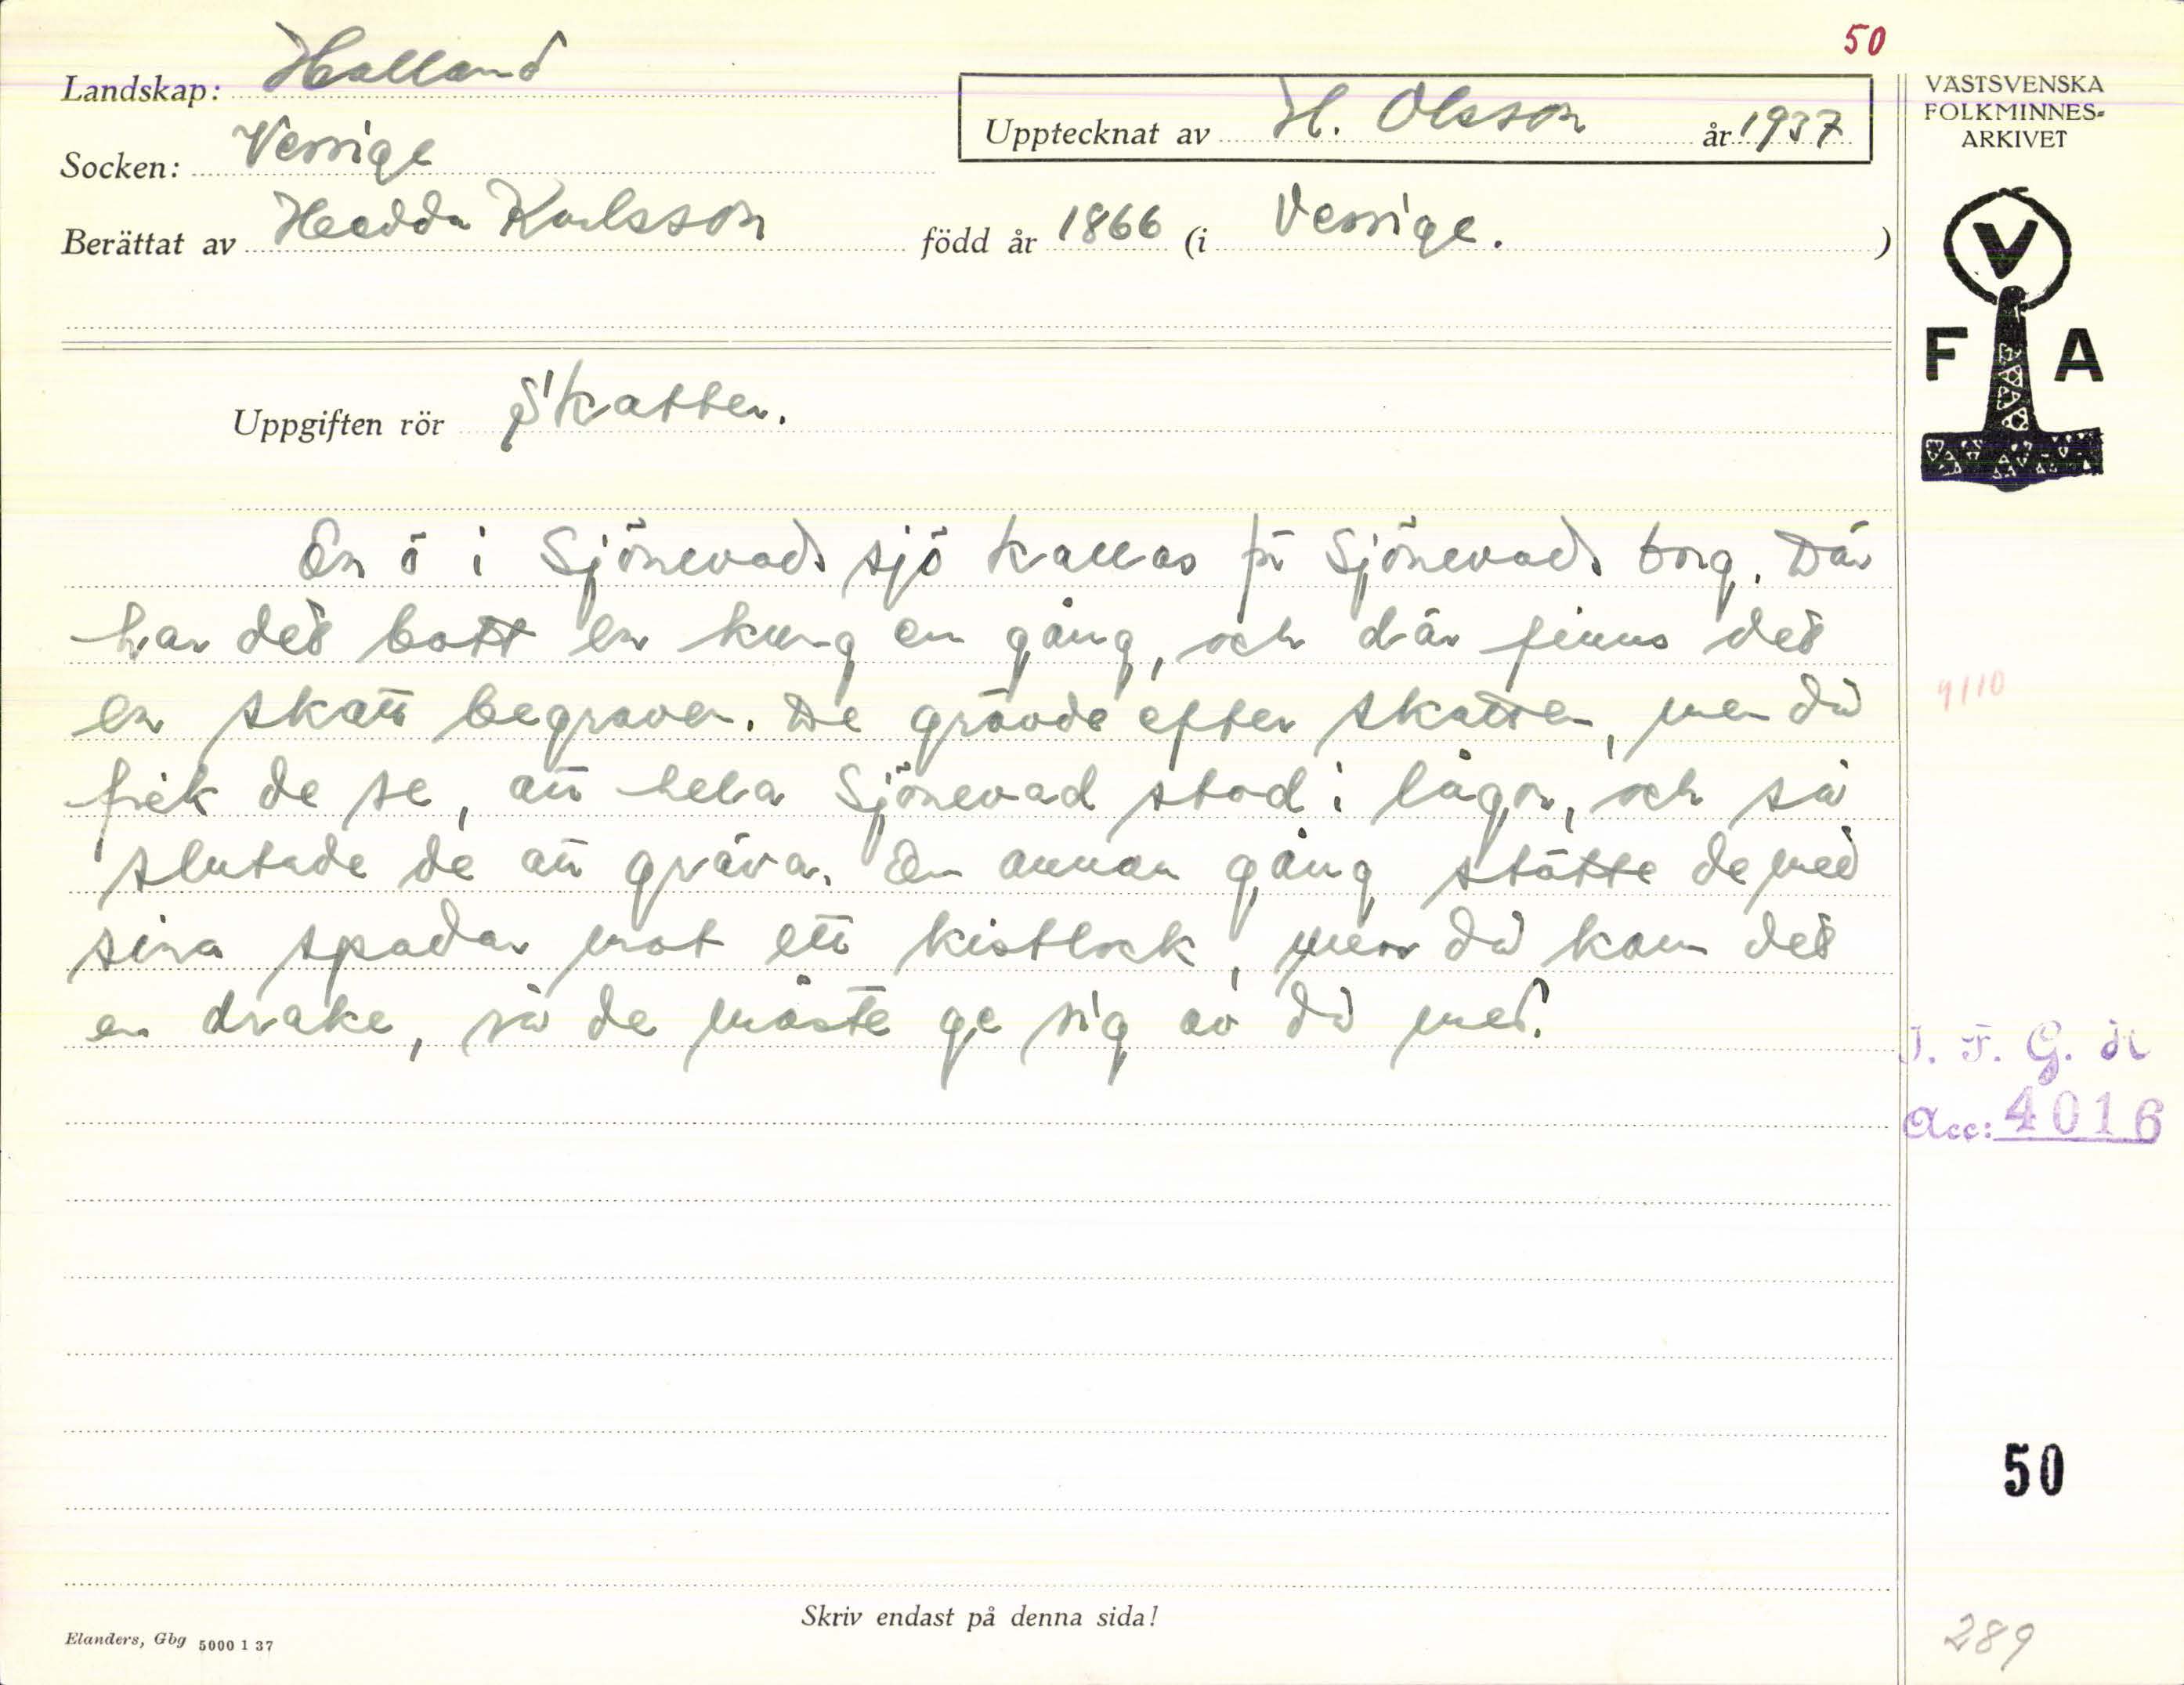 50
Landskap: Halland
Socken: Vessige
Upptecknat av H. Olsson år 1937
Berättat av Hedda Karlsson född år 1866 (i Vessige. )
VÄSTSVENSKA
FOLKMINNES-
ARKIVET
V
F A
Uppgiften rör Skatter.
En ö i Sjönevads sjö kallas för Sjönevads borg. Där
har det bott en kung en gång, och där finns det
en skatt begraven. De grävde efter skatten, men då
fick de se, att hela Sjönevad stod i lågor, och så
slutade de att gräva. En annan gång stötte de med
sina spadar mot ett kistlock, men då kom det
en drake, så de måste ge sig av då med.
9/10
I. F. G. H
Acc: 4016
50
Skriv endast på denna sida!
Elanders, Gbg 5000 1 37
289